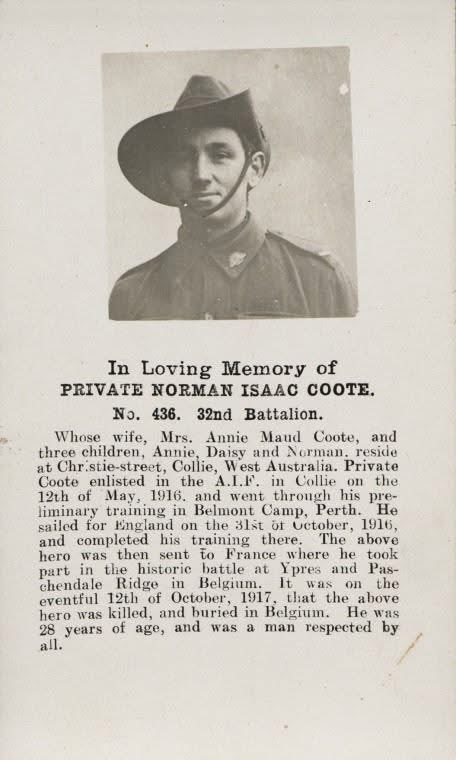 In Loving Memory of
PRIVATE NORMAN ISAAC COOTE.
No. 436. 32nd Battalion.
Whose wife, Mrs. Annie Maud Coote, and
three children, Annie, Daisy and Norman, reside
at Christie-street, Collie, West Australia. Private
Coote enlisted in the A.I.F. in Collie on the
12th of May, 1916, and went through his pre-
liminary training in Belmont Camp, Perth. He
sailed for England on the 31st of October, 1916,
and completed his training there. The above
hero was then sent to France where he took
part in the historic battle at Ypres and Pas-
chendale Ridge in Belgium. It was on the
eventful 12th of October, 1917, that the above
hero was killed, and buried in Belgium. He was
28 years of age, and was a man respected by
all.